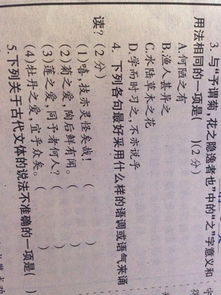 3. 与“予谓菊,花之隐逸者也”中的“之”字意义和
用法相同的一项是( )(2分)
A. 何陋之有
B. 渔人甚异之
C. 水陆草木之花
D. 学而时习之,不亦说乎
4. 下列各句最好采用什么样的语调或语气来诵
读?(2分)
(1)嘻,技亦灵怪矣哉! ( )
(2)菊之爱,陶后鲜有闻。 ( )
(3)莲之爱,同予者何人? ( )
(4)牡丹之爱,宜乎众矣。 ( )
5. 下列关于古代文体的说法不准确的一项是(